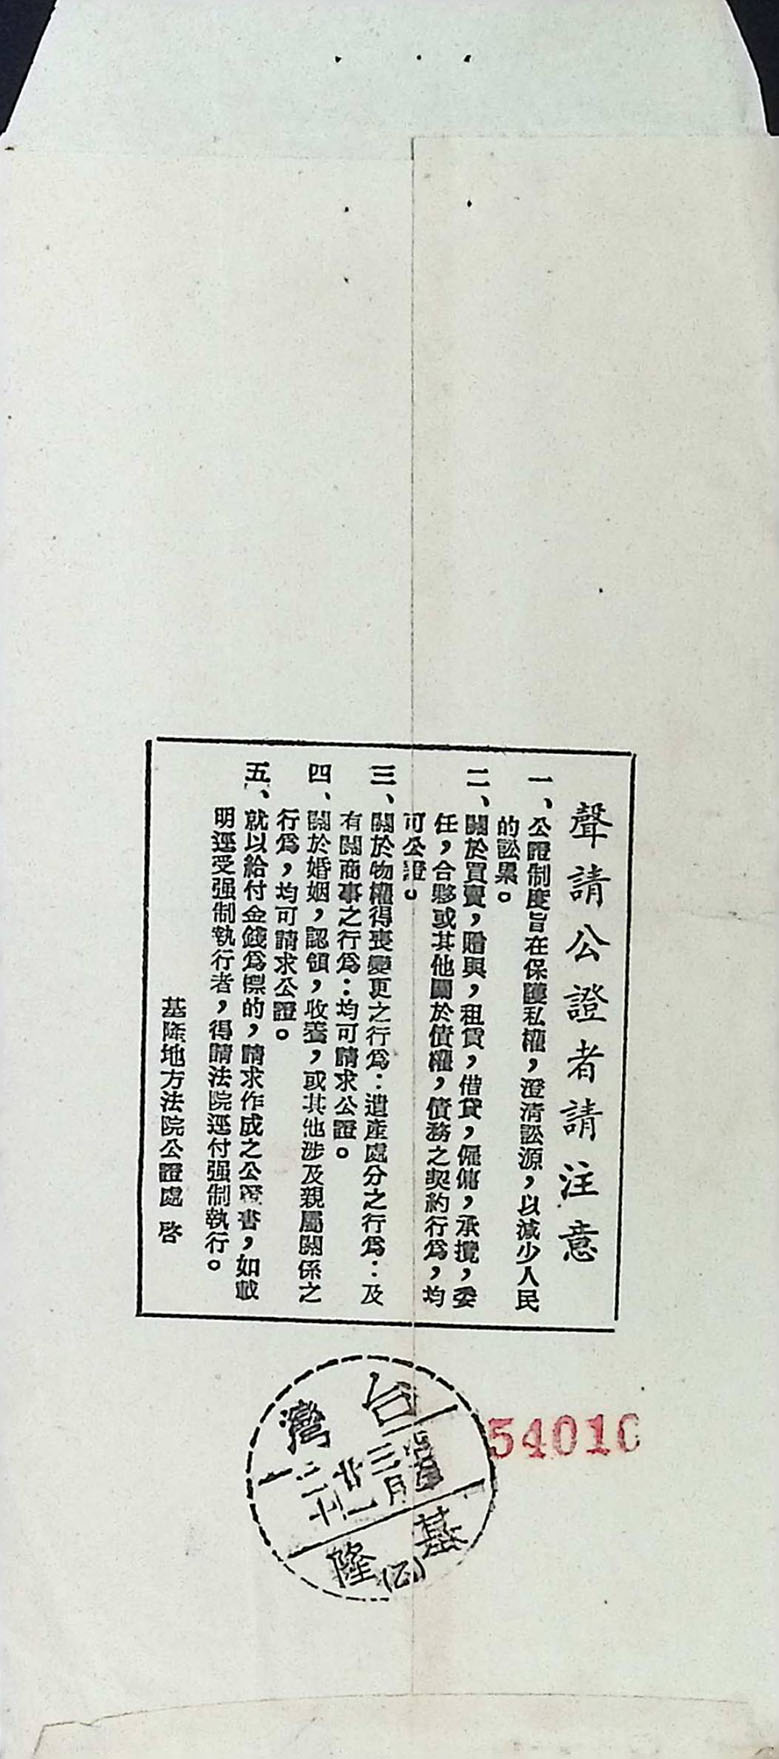 聲請公證者請注意
一、公證制度旨在保護私權，澄清訟源，以減少人民
的訟累。
二、關於買賣，贈與，租賃，借貸，僱傭，承攬，委
任，合夥或其他關於債權，債務之契約行爲，均
可公證。
三、關於物權得喪變更之行爲：遺產處分之行爲：及
有關商事之行爲：均可請求公證。
四、關於婚姻，認領，收養，或其他涉及親屬關係之
行爲，均可請求公證。
五、就以給付金錢爲標的，請求作成之公證書，如載
明逕受强制執行者，得請法院逕付强制執行。
基隆地方法院公證處 啓
台灣
三月
廿一
二十
基隆
(乙)
54010